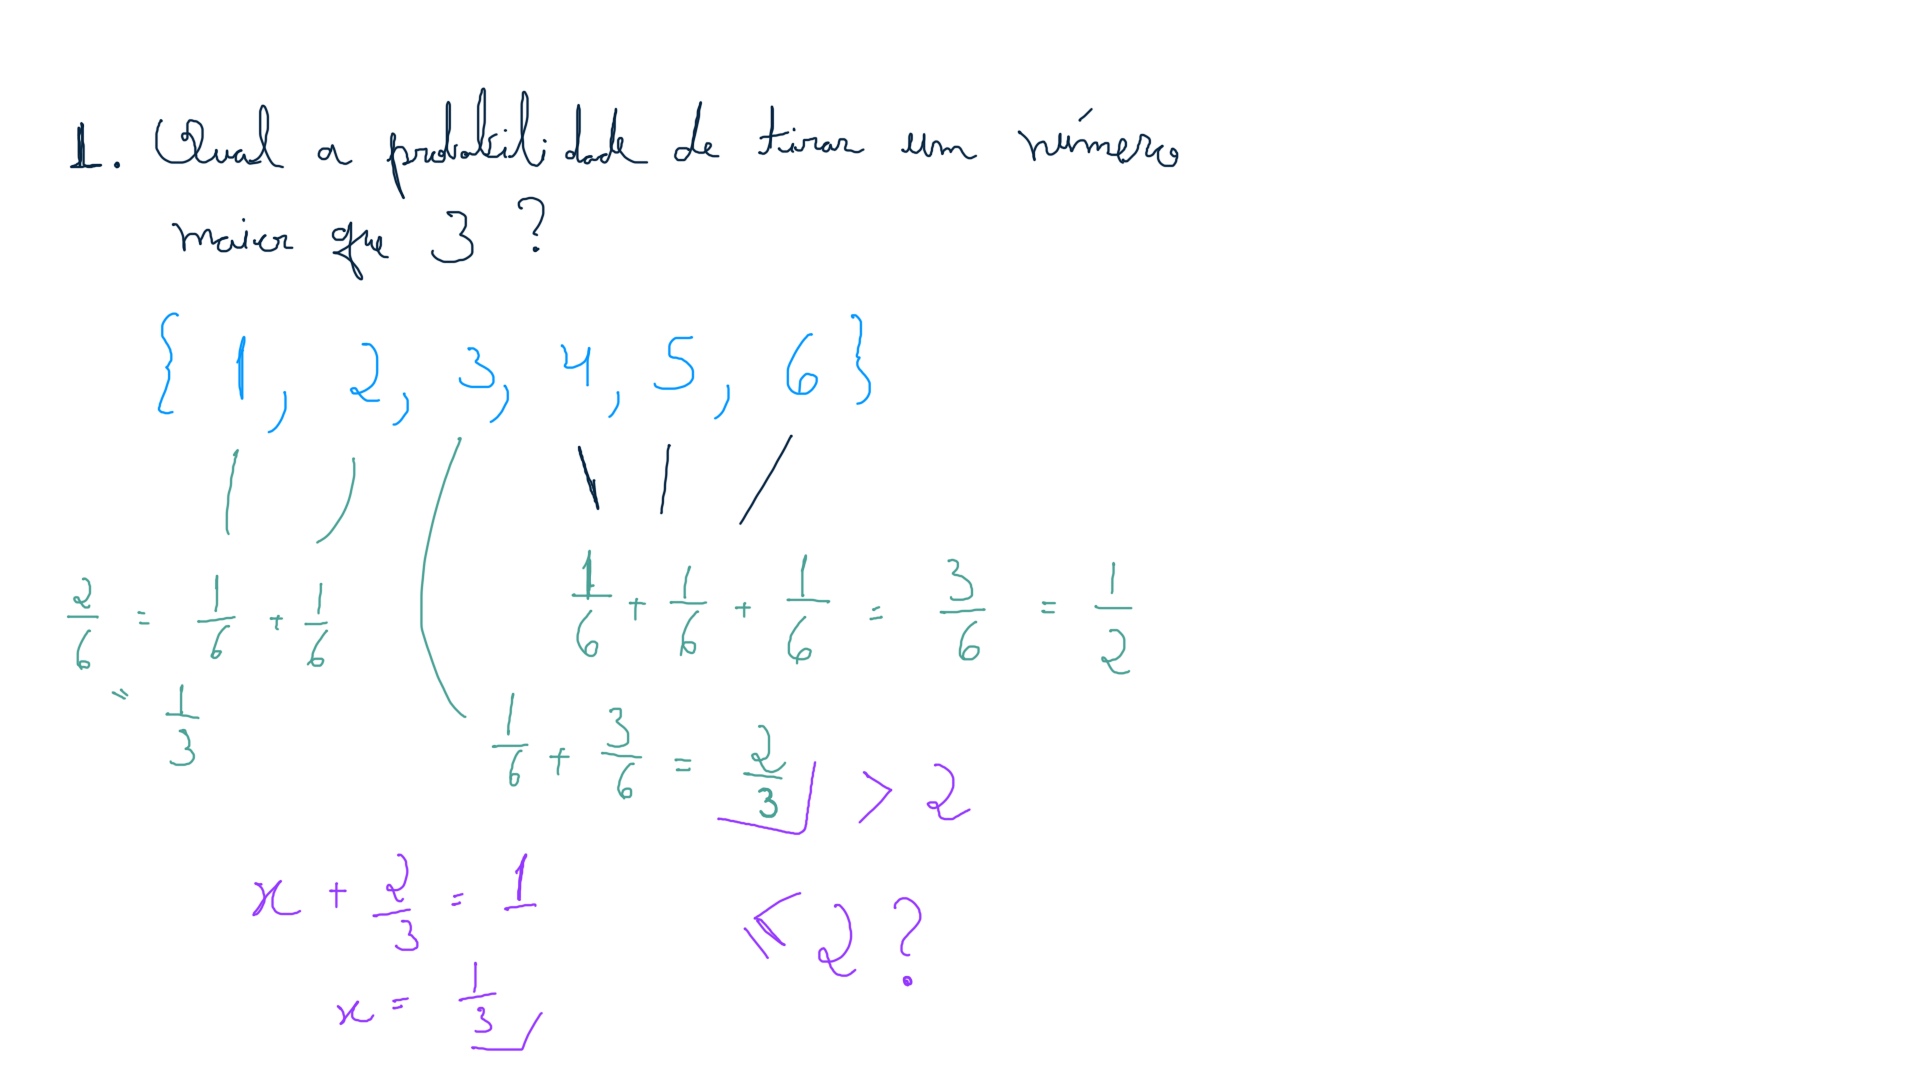 1. Qual a probabilidade de tirar um número
maior que 3 ?
{ 1, 2, 3, 4, 5, 6 }
2/6 = 1/6 + 1/6
= 1/3
1/6 + 1/6 + 1/6 = 3/6 = 1/2
1/6 + 3/6 = 2/3 > 2
x + 2/3 = 1
≤ 2 ?
x = 1/3